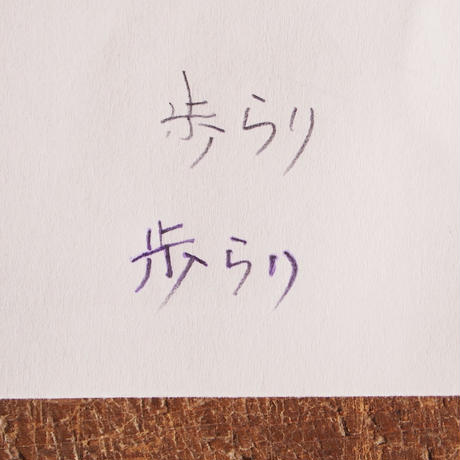 歩らり
歩らり